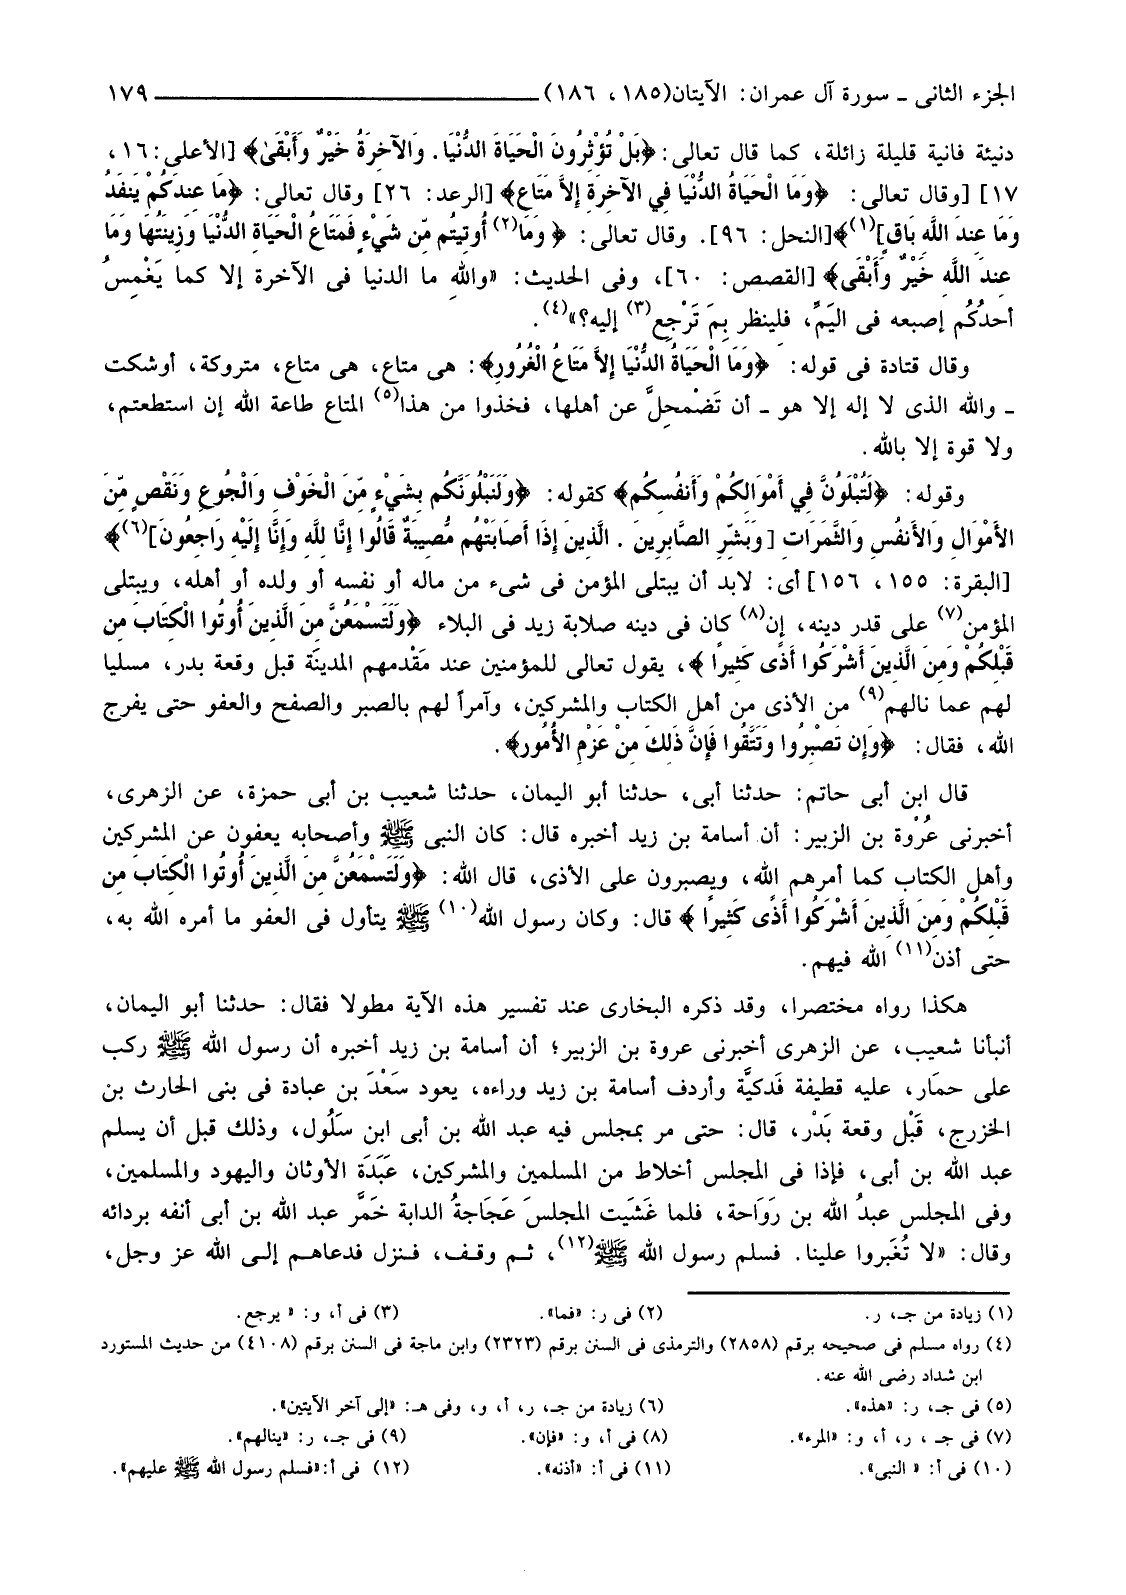 الجزء الثانى ـ سورة آل عمران: الآيتان(١٨٥، ١٨٦) ١٧٩
دنيئة فانية قليلة زائلة، كما قال تعالى: ﴿بَلْ تُؤْثِرُونَ الْحَيَاةَ الدُّنْيَا. وَالآخِرَةُ خَيْرٌ وَأَبْقَىٰ﴾ [الأعلى:١٦،
١٧] [وقال تعالى: ﴿وَمَا الْحَيَاةُ الدُّنْيَا فِي الآخِرَةِ إِلاَّ مَتَاع﴾ [الرعد: ٢٦] وقال تعالى: ﴿مَا عِندَكُمْ يَنفَدُ
وَمَا عِندَ اللَّهِ بَاقٍ](١)﴾[النحل: ٩٦]. وقال تعالى: ﴿ وَمَا(٢) أُوتِيتُم مِّن شَيْءٍ فَمَتَاعُ الْحَيَاةِ الدُّنْيَا وَزِينَتُهَا وَمَا
عِندَ اللَّهِ خَيْرٌ وَأَبْقَى﴾ [القصص: ٦٠]، وفى الحديث: «واللهِ ما الدنيا فى الآخرة إلا كما يَغْمِسُ
أحدُكُم إصبعه فى اليَمِّ، فلينظر بِمَ تَرْجِع(٣) إليه؟»(٤).
وقال قتادة فى قوله: ﴿وَمَا الْحَيَاةُ الدُّنْيَا إِلاَّ مَتَاعُ الْغُرُورِ﴾: هى متاع، هى متاع، متروكة، أوشكت
ـ والله الذى لا إله إلا هو ـ أن تَضْمَحِلَّ عن أهلها، فخذوا من هذا(٥) المتاع طاعة الله إن استطعتم،
ولا قوة إلا بالله.
وقوله: ﴿لَتُبْلَوُنَّ فِي أَمْوَالِكُمْ وَأَنفُسِكُم﴾ كقوله: ﴿وَلَنَبْلُوَنَّكُم بِشَيْءٍ مِّنَ الْخَوْفِ وَالْجُوعِ وَنَقْصٍ مِّنَ
الأَمْوَالِ وَالأَنفُسِ وَالثَّمَرَاتِ [وَبَشِّرِ الصَّابِرِينَ . الَّذِينَ إِذَا أَصَابَتْهُم مُّصِيبَةٌ قَالُوا إِنَّا لِلَّهِ وَإِنَّا إِلَيْهِ رَاجِعُونَ](٦)﴾
[البقرة: ١٥٥، ١٥٦] أى: لابد أن يبتلى المؤمن فى شىء من ماله أو نفسه أو ولده أو أهله، ويبتلى
المؤمن(٧) على قدر دينه، إن(٨) كان فى دينه صلابة زيد فى البلاء ﴿وَلَتَسْمَعُنَّ مِنَ الَّذِينَ أُوتُوا الْكِتَابَ مِن
قَبْلِكُمْ وَمِنَ الَّذِينَ أَشْرَكُوا أَذًى كَثِيرًا ﴾، يقول تعالى للمؤمنين عند مَقْدمهم المدينَة قبل وقعة بدر، مسليا
لهم عما نالهم(٩) من الأذى من أهل الكتاب والمشركين، وآمراً لهم بالصبر والصفح والعفو حتى يفرج
الله، فقال: ﴿وَإِن تَصْبِرُوا وَتَتَّقُوا فَإِنَّ ذَلِكَ مِنْ عَزْمِ الأُمُور﴾.
قال ابن أبى حاتم: حدثنا أبى، حدثنا أبو اليمان، حدثنا شعيب بن أبى حمزة، عن الزهرى،
أخبرنى عُرْوة بن الزبير: أن أسامة بن زيد أخبره قال: كان النبى ﷺ وأصحابه يعفون عن المشركين
وأهل الكتاب كما أمرهم الله، ويصبرون على الأذى، قال الله: ﴿وَلَتَسْمَعُنَّ مِنَ الَّذِينَ أُوتُوا الْكِتَابَ مِن
قَبْلِكُمْ وَمِنَ الَّذِينَ أَشْرَكُوا أَذًى كَثِيرًا ﴾ قال: وكان رسول الله(١٠) ﷺ يتأول فى العفو ما أمره الله به،
حتى أذن(١١) الله فيهم.
هكذا رواه مختصرا، وقد ذكره البخارى عند تفسير هذه الآية مطولا فقال: حدثنا أبو اليمان،
أنبأنا شعيب، عن الزهرى أخبرنى عروة بن الزبير؛ أن أسامة بن زيد أخبره أن رسول الله ﷺ ركب
على حمَار، عليه قطيفة فَدكيَّة وأردف أسامة بن زيد وراءه، يعود سَعْدَ بن عبادة فى بنى الحارث بن
الخزرج، قَبْل وقعة بَدْر، قال: حتى مر بمجلس فيه عبد الله بن أبى ابن سَلُول، وذلك قبل أن يسلم
عبد الله بن أبى، فإذا فى المجلس أخلاط من المسلمين والمشركين، عَبَدَة الأوثان واليهود والمسلمين،
وفى المجلس عبدُ الله بن رَوَاحة، فلما غَشَيَت المجلسَ عَجَاجةُ الدابة خَمَّر عبد الله بن أبى أنفه بردائه
وقال: «لا تُغَبروا علينا. فسلم رسول الله ﷺ(١٢)، ثم وقف، فنزل فدعاهم إلى الله عز وجل،
(١) زيادة من جـ، ر. (٢) فى ر: «فما». (٣) فى أ، و: « يرجع.
(٤) رواه مسلم فى صحيحه برقم (٢٨٥٨) والترمذى فى السنن برقم (٢٣٢٣) وابن ماجة فى السنن برقم (٤١٠٨) من حديث المستورد
ابن شداد رضى الله عنه.
(٥) فى جـ، ر: «هذه». (٦) زيادة من جـ، ر، أ، و، وفى هـ: «إلى آخر الآيتين».
(٧) فى جـ ، ر، أ، و: «المرء». (٨) فى أ، و: «فإن». (٩) فى جـ، ر: «ينالهم».
(١٠) فى أ: « النبى». (١١) فى أ: «أذنه». (١٢) فى أ:«فسلم رسول الله ﷺ عليهم».